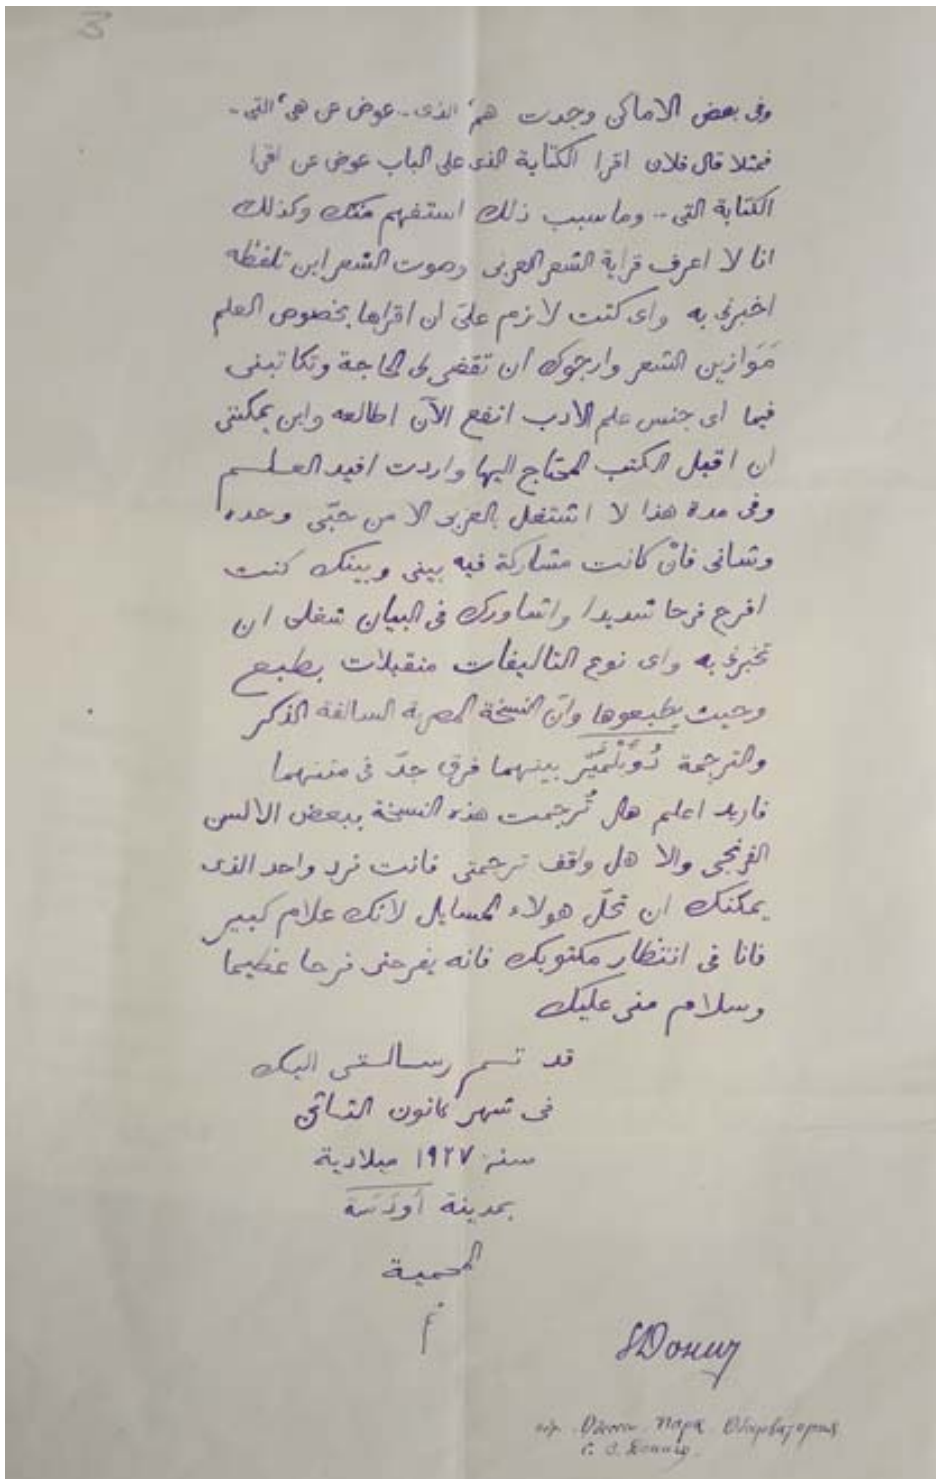 3
وفى بعض الاماكن وجدت هم الذى .. عوض عن هى التى ..
فمثلا قال فلان اقرا الكتابة الذى على الباب عوض عن اقرا
الكتابة التى .. وما سبب ذلك استفهم منك وكذلك
انا لا اعرف قراية الشعر العربى وصوت الشعر اين تلفظه
اخبرنى به واى كتب لازم علىّ ان اقراها بخصوص العلم
مَوَازين الشعر وارجوك ان تقضى لى الحاجة وتكاتبنى
فيما اى جنس علم الادب انفع الآن اطالعه واين يمكننى
ان اقبل الكتب المحتاج اليها واردت افيد العلم
وفى مدة هذا لا اشتغل بالعربى الا من حبّى وحده
وشانى فان كانت مشاركة فيه بينى وبينك كنت
افرح فرحا شديدا واشاورك فى البيان شغلى ان
تخبرنى به واى نوع التاليفات منقبلات بطبع
وحيث يطبعوها وان النسخة المصرية السالفة الذكر
والترجمة بينهما فرق جدّ فى متنهما
فاريد اعلم هل تُرجمت هذه النسخة ببعض الالسن
الفرنجى والا هل واقف ترجمتى فانت فرد واحد الذى
يمكنك ان تحلّ هولاء المسايل لانك علام كبير
فانا فى انتظار مكتوبك فانه يفرحنى فرحا عظيما
وسلام منى عليك
قد تم رسالتى اليك
فى شهر كانون الثانى
سنة ١٩٢٧ ميلادية
بمدينة اودسة
المحمية
م
Одесса. Парк Обсерватория